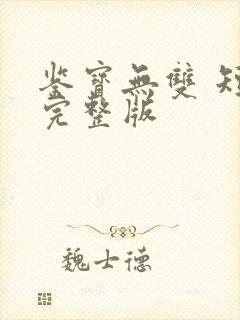 鉴寶無雙 短
完整版
魏士德